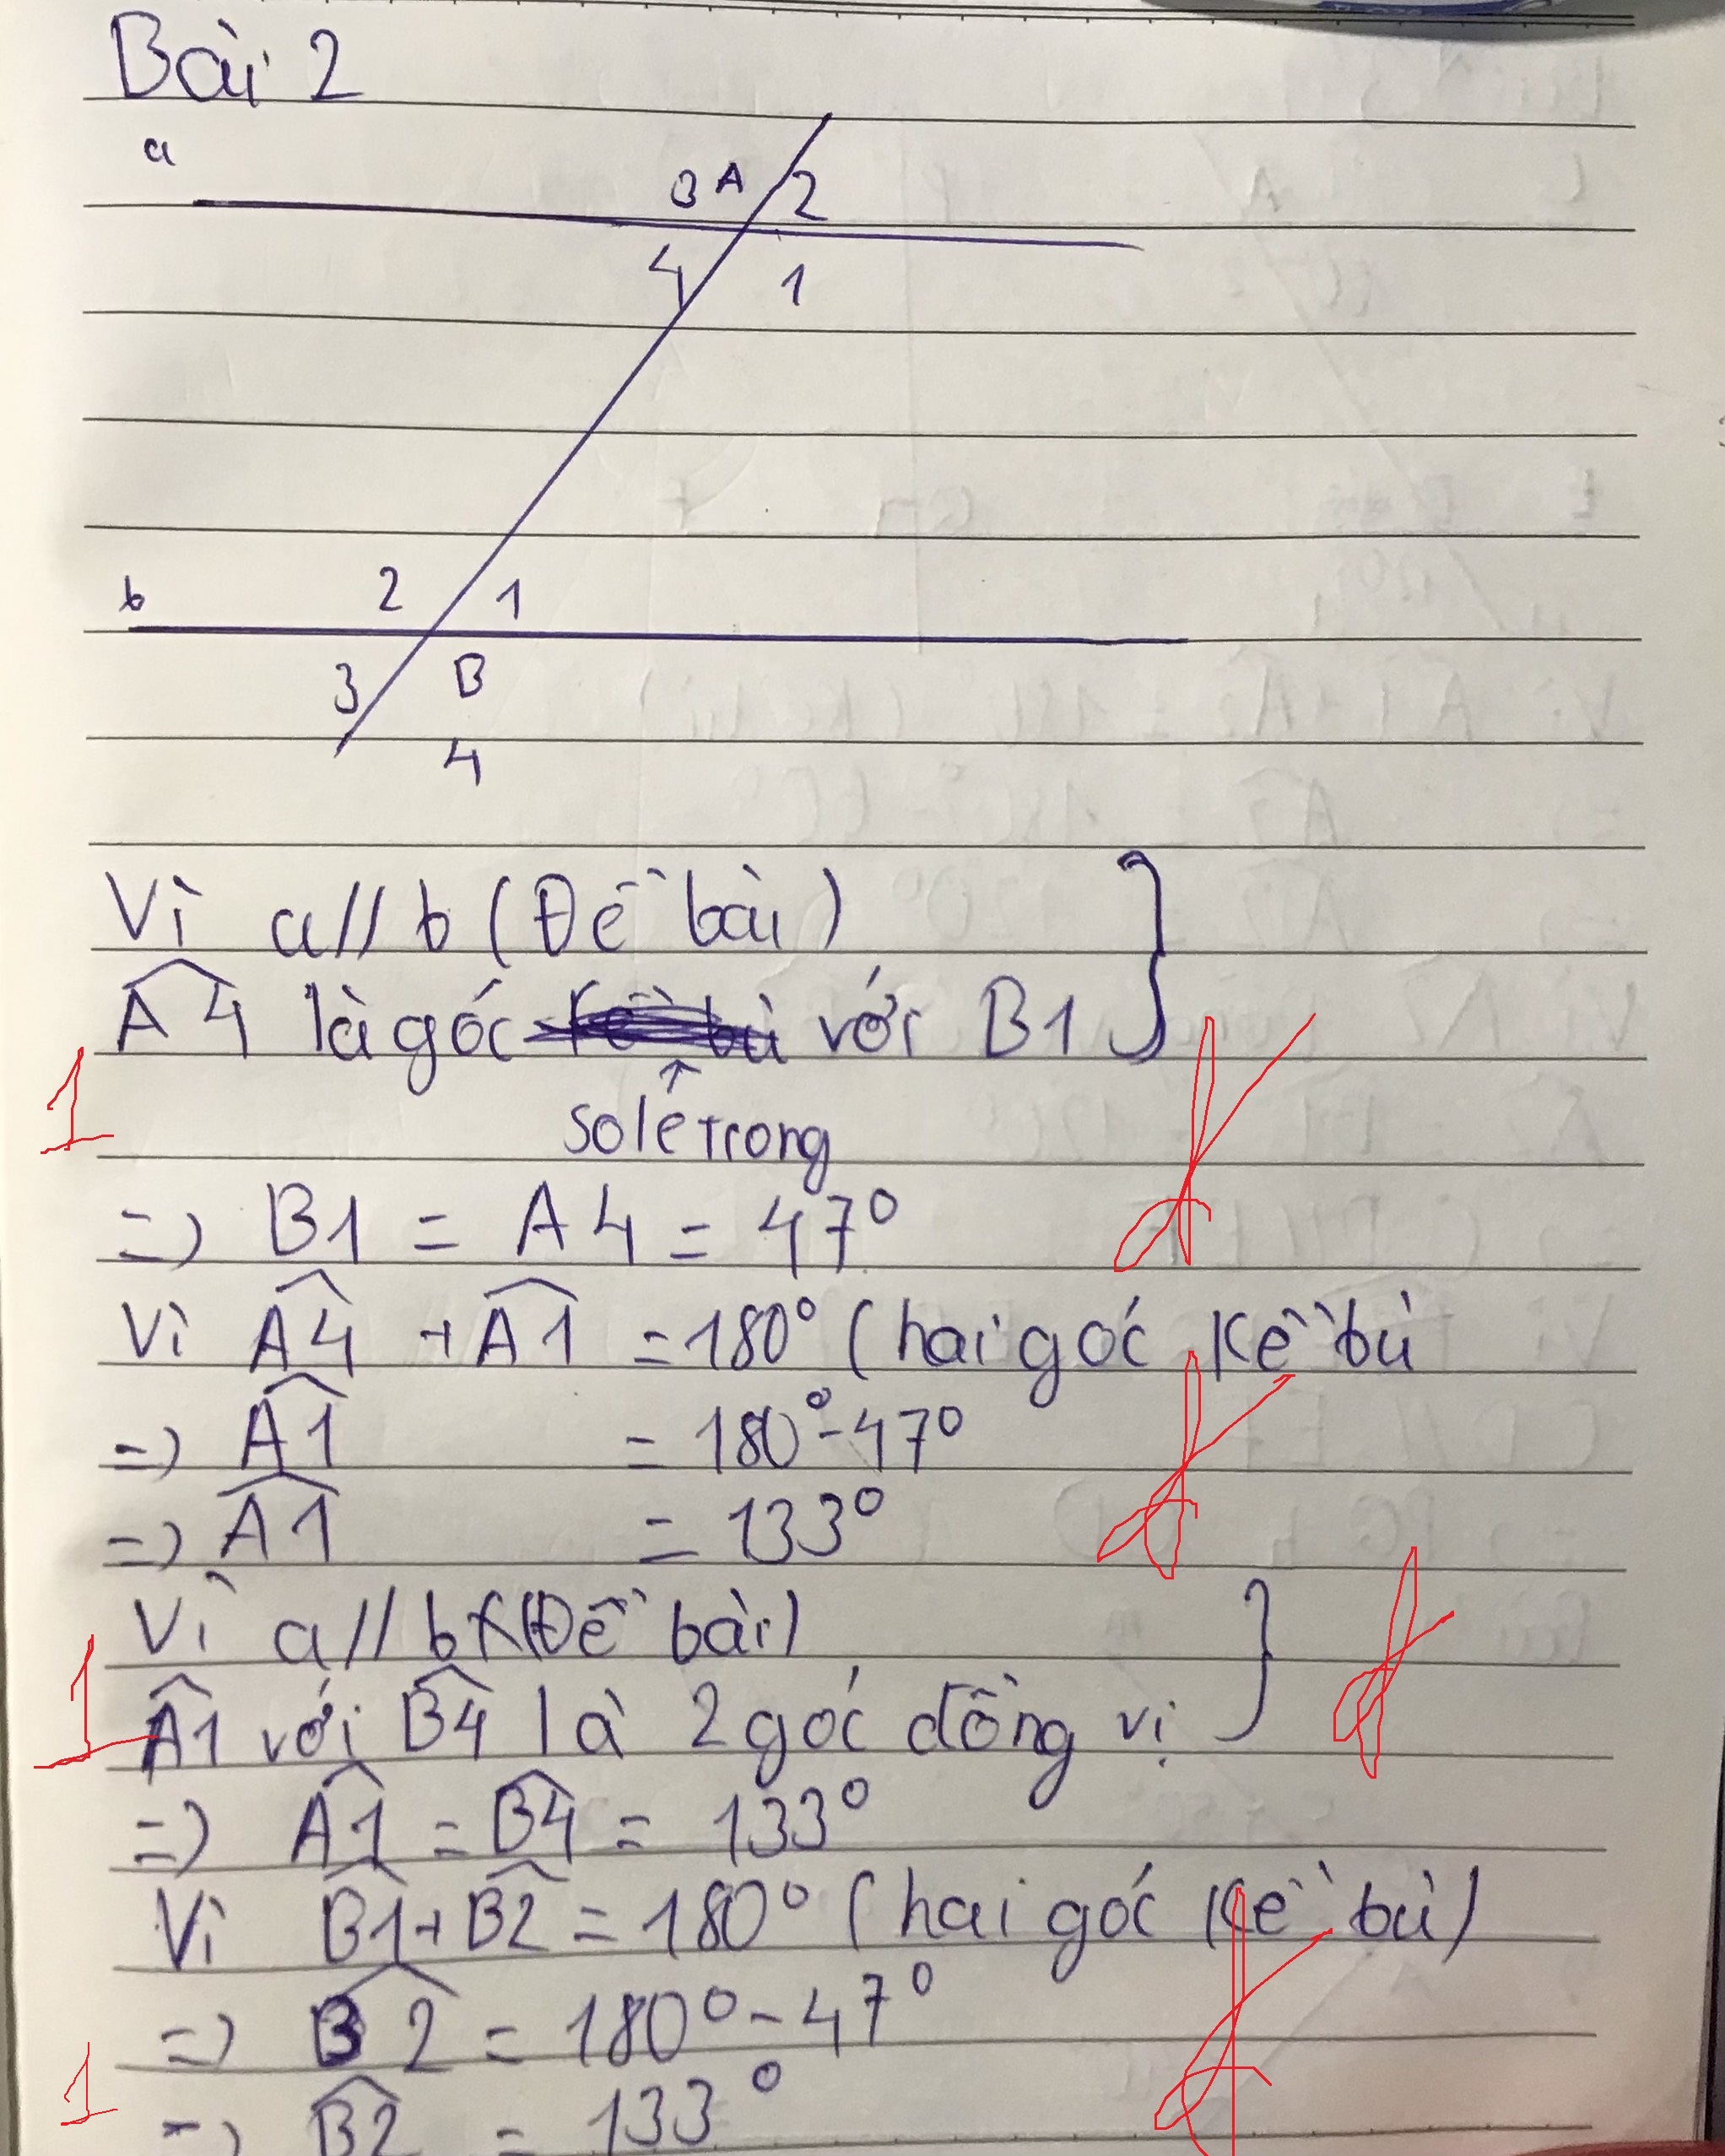 Bài 2
a
3 A 2
4 1
b 2 1
3 B
4
Vì a // b (Đề bài)
A4 là góc với B1
1
so le trong
=> B1 = A4 = 47°
Vì A4 + A1 = 180° (hai góc kề bù
=> A1 = 180° - 47°
=> A1 = 133°
Vì a // b (Đề bài)
1
A1 với B4 là 2 góc đồng vị
=> A1 = B4 = 133°
Vì B1 + B2 = 180° (hai góc kề bù)
=> B2 = 180° - 47°
1
=> B2 = 133°